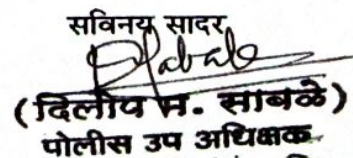 सविनय सादर
(दिलीप म. साबळे)
पोलीस उप अधिक्षक